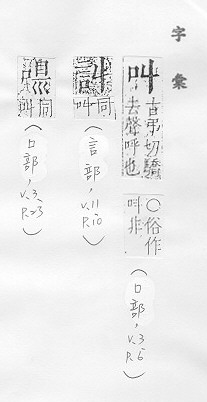 字彙
叫
吉弔切驕
去聲呼也
○俗作
呌非
(口部, v.3 P.6)
訆
同
叫
(言部, v.11 P.10)
同
叫
(口部, v.3, P.23)